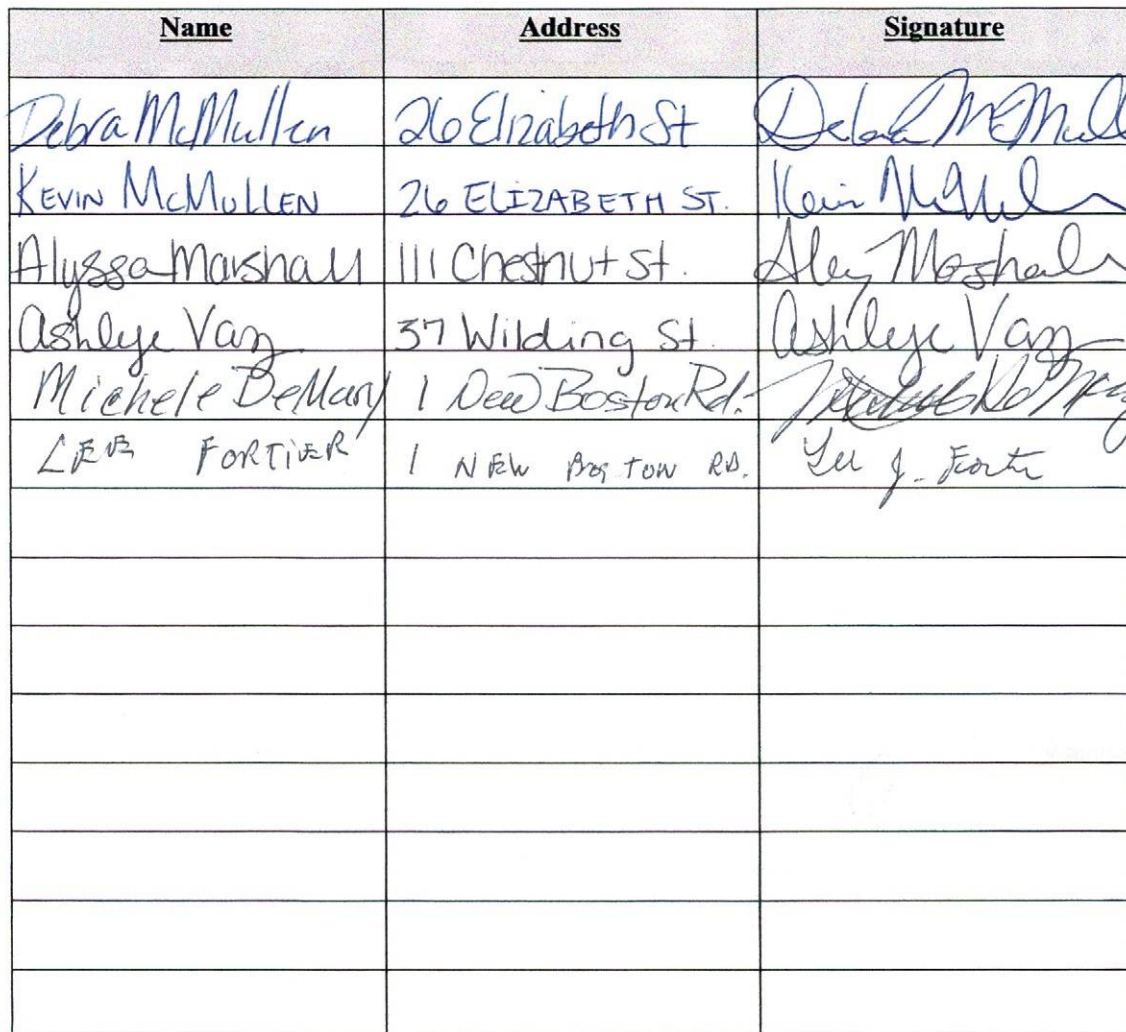 Name Address Signature
Debra McMullen 26 Elizabeth St Debra McMull
KEVIN McMULLEN 26 ELIZABETH ST. Kevin McMullen
Alyssa Marshall 111 Chestnut St. Aly Marshall
Ashlye Vaz 37 Wilding St. Ashlye Vaz
Michele DeMary 1 New Boston Rd.
LEE FORTIER 1 NEW BOSTON RD. Lee J. Fortier